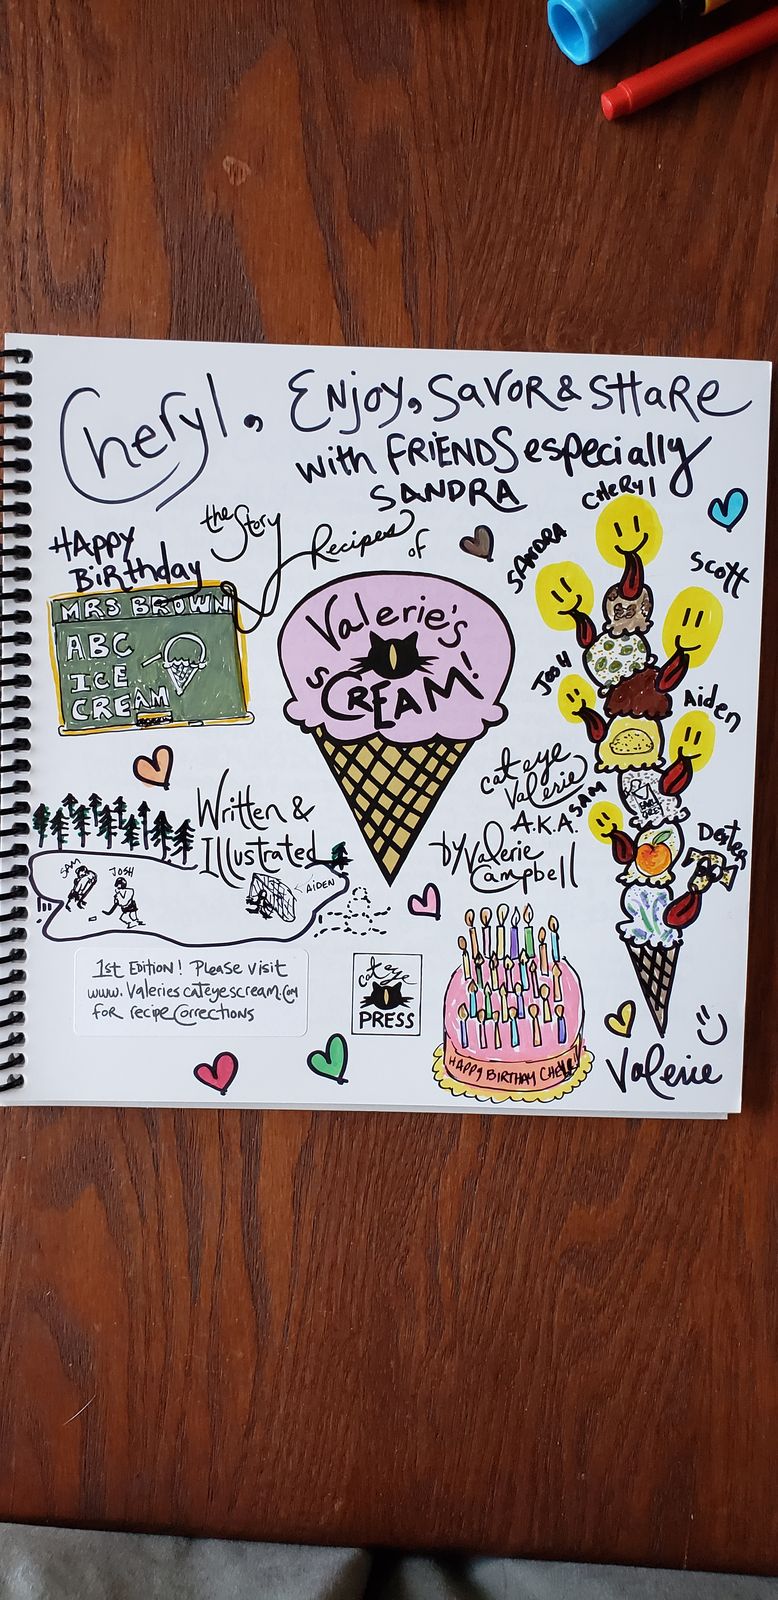 Cheryl, Enjoy, Savor & Share
with Friends especially
Sandra
Happy
Birthday
the Story
Recipes
of
Valerie's
sCREAM!
MRS BROWN
ABC
ICE
CREAM
CHERYL
SANDRA
SCOTT
JOSH
Aiden
SAM
Dexter
EARL
GREY
cat eye
Valerie
A.K.A.
by Valerie
Campbell
Written &
Illustrated
SAM
JOSH
AIDEN
1st Edition! Please visit
www.Valeriescateyescream.com
for recipe corrections
cat eye
PRESS
HAPPY BIRTHAY CHERYL
Valerie